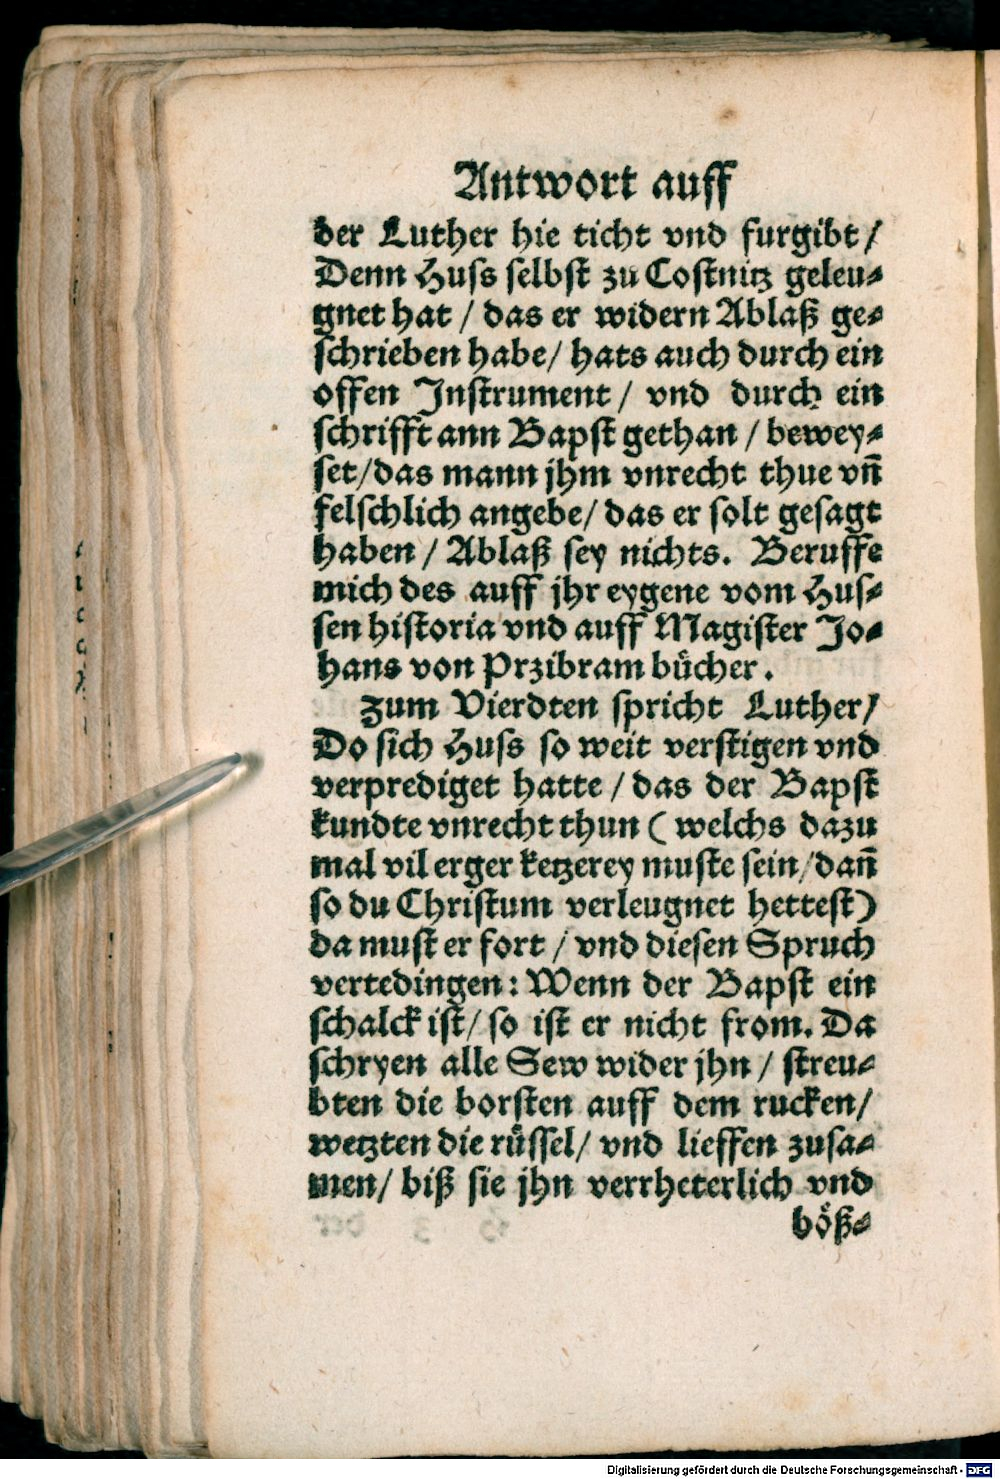 Antwort auff
der Luther hie ticht vnd furgibt /
Denn Huss selbst zu Costnitz geleu-
gnet hat / das er widern Ablaß ge-
schrieben habe / hats auch durch ein
offen Instrument / vnd durch ein
schrifft ann Bapst gethan / bewey-
set / das mann jhm vnrecht thue vñ
felschlich angebe / das er solt gesagt
haben / Ablaß sey nichts. Beruffe
mich des auff jhr eygene vom Hus-
sen historia vnd auff Magister Jo-
hans von Przibram bücher.
Zum Vierdten spricht Luther /
Do sich Huss so weit verstigen vnd
verprediget hatte / das der Bapst
kundte vnrecht thun ( welchs dazu
mal vil erger ketzerey muste sein / dañ
so du Christum verleugnet hettest )
da must er fort / vnd diesen Spruch
vertedingen : Wenn der Bapst ein
schalck ist / so ist er nicht from. Da
schryen alle Sew wider jhn / streu-
bten die borsten auff dem rucken /
wetzten die rüssel / vnd lieffen zusa-
men / biß sie jhn verrheterlich vnd
böß-
Digitalisierung gefördert durch die Deutsche Forschungsgemeinschaft - DFG